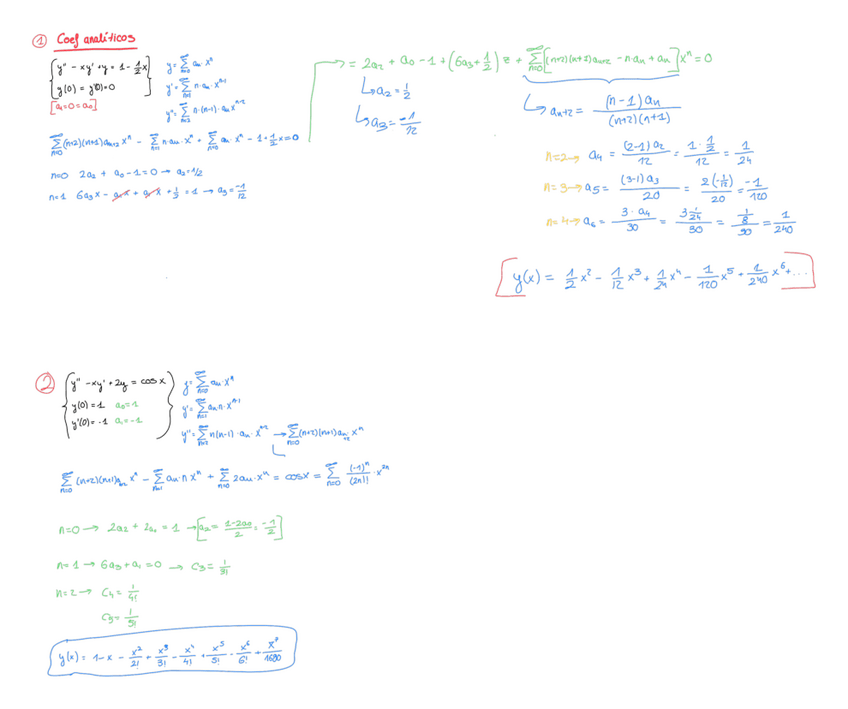 ① Coef analíticos
y'' - xy' + y = 1 - 1/2 x
y(0) = y'(0) = 0
[a₁ = 0 = a₀]
y = ∑_{n=0}^∞ aₙ xⁿ
y' = ∑_{n=1}^∞ n·aₙ·xⁿ⁻¹
y'' = ∑_{n=2}^∞ n·(n-1)·aₙ xⁿ⁻²
∑_{n=0}^∞ (n+2)(n+1)aₙ₊₂ xⁿ - ∑_{n=1}^∞ n·aₙ·xⁿ + ∑_{n=0}^∞ aₙ·xⁿ - 1 + 1/2 x = 0
n=0 2a₂ + a₀ - 1 = 0 → a₂ = 1/2
n=1 6a₃x - a₁x + a₁x + 1/2 = 1 → a₃ = -1/12
= 2a₂ + a₀ - 1 + (6a₃ + 1/2) z + ∑_{n=0}^∞ [(n+2)(n+1)aₙ₊₂ - n·aₙ + aₙ] xⁿ = 0
↳ a₂ = 1/2
↳ a₃ = -1/12
↳ aₙ₊₂ = (n-1)aₙ / (n+2)(n+1)
n=2 → a₄ = (2-1)a₂/12 = 1·1/2/12 = 1/24
n=3 → a₅ = (3-1)a₃/20 = 2(-1/12)/20 = -1/120
n=4 → a₆ = 3·a₄/30 = 3 1/24/30 = 1/8/30 = 1/240
y(x) = 1/2 x² - 1/12 x³ + 1/24 x⁴ - 1/120 x⁵ + 1/240 x⁶ + ...
②
y'' - xy' + 2y = cos x
y(0) = 1 a₀ = 1
y'(0) = -1 a₁ = -1
y = ∑_{n=0}^∞ aₙ·xⁿ
y' = ∑_{n=1}^∞ aₙ n·xⁿ⁻¹
y'' = ∑_{n=2}^∞ n(n-1)·aₙ·xⁿ⁻² → ∑_{n=0}^∞ (n+2)(n+1)aₙ₊₂·xⁿ
∑_{n=0}^∞ (n+2)(n+1)aₙ₊₂ xⁿ - ∑_{n=1}^∞ aₙ·n xⁿ + ∑_{n=0}^∞ 2aₙ·xⁿ = cos x = ∑_{n=0}^∞ (-1)ⁿ/(2n)! · x²ⁿ
n=0 → 2a₂ + 2a₀ = 1 → [a₂ = 1-2a₀/2 = -1/2]
n=1 → 6a₃ + a₁ = 0 → c₃ = 1/3!
n=2 → c₄ = 1/4!
c₅ = 1/5!
y(x) = 1 - x - x²/2! + x³/3! - x⁴/4! + x⁵/5! - x⁶/6! + x⁷/1680